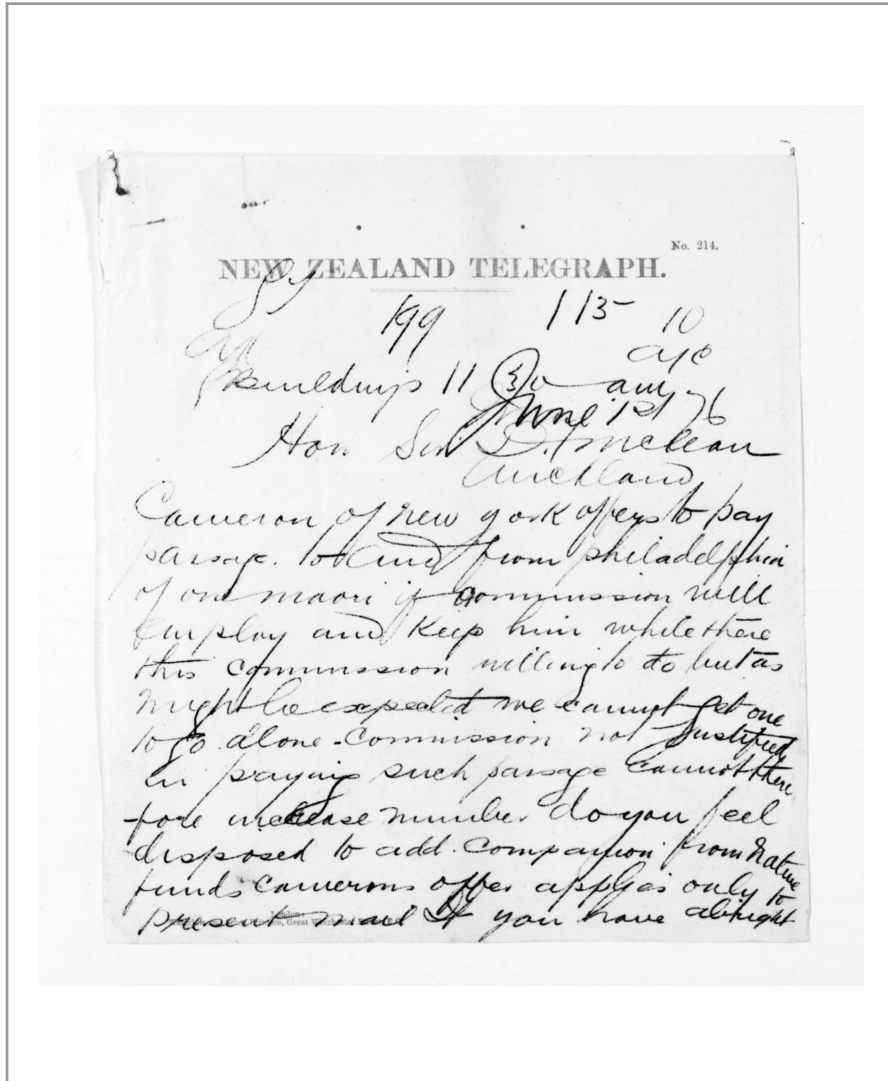 No. 214.
NEW ZEALAND TELEGRAPH.
199 115 10
Buildings 11 30 am
June 1st 76
Hon Sir D. McLean
Auckland
Cameron of New York offers to pay
passage to and from philadelphia
of one maori if commission will
Employ and Keep him while there
this commission willing to do but as
might be expected we cannot get one
to go alone - Commission not Justified
in paying such passage cannot there
fore increase number do you feel
disposed to add companion from Native
funds Camerons offer applies only to
present mail If you have